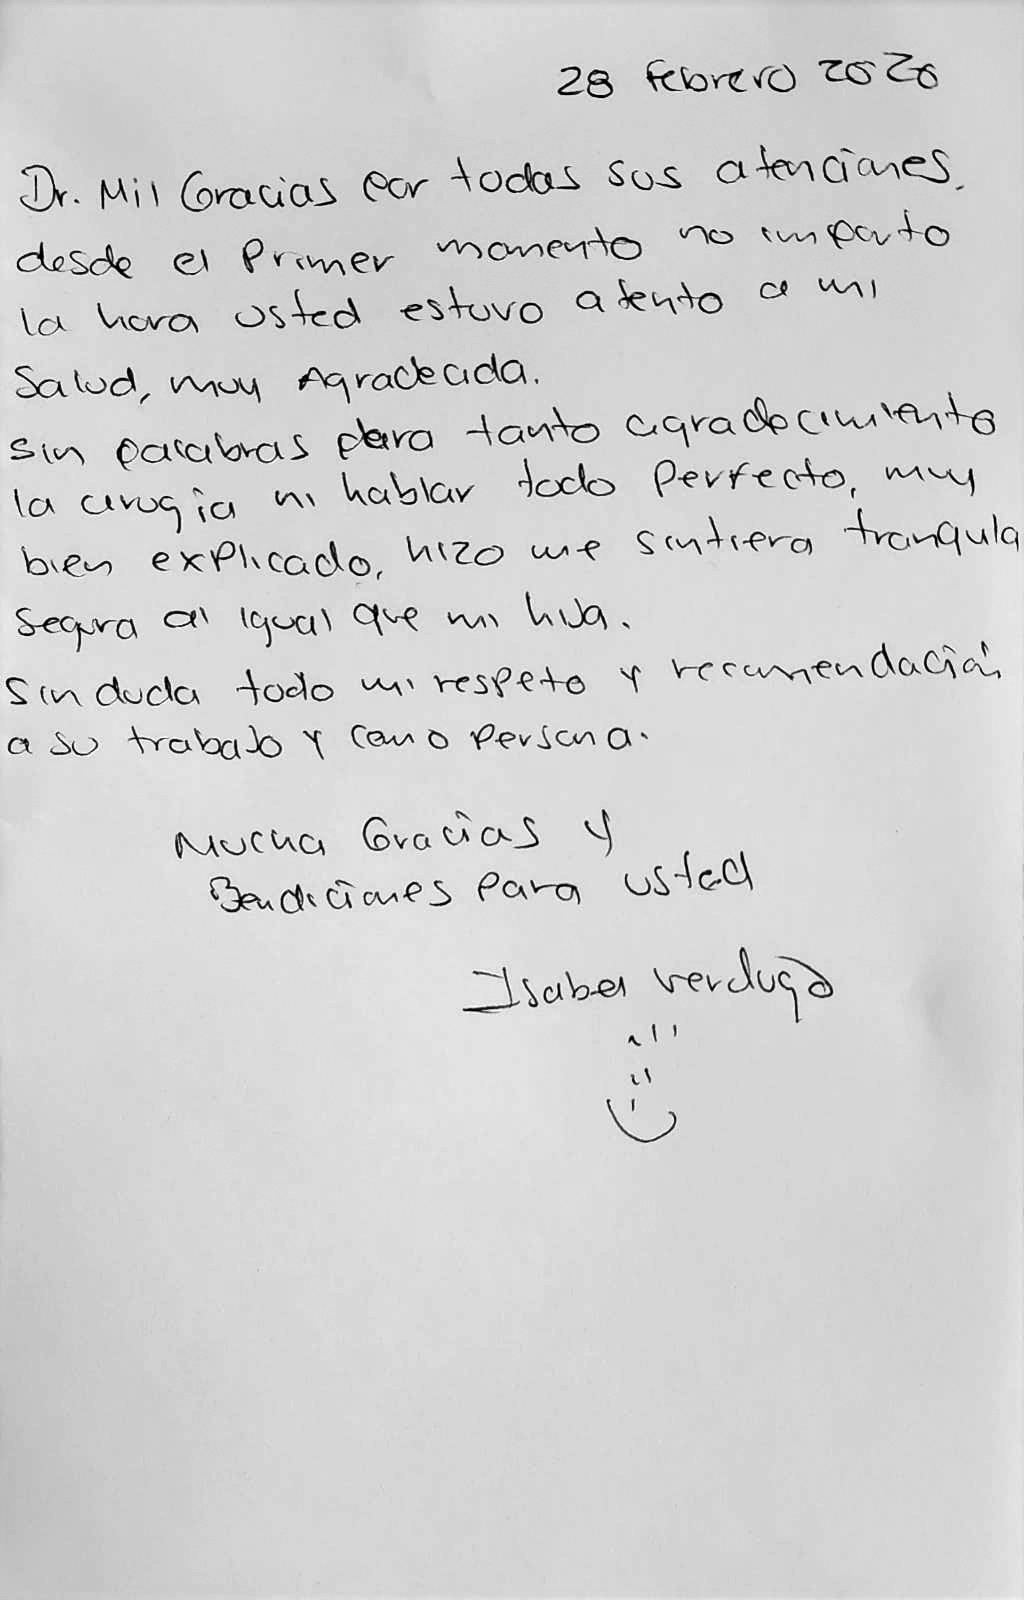 28 febrero 2020
Dr. Mil Gracias por todas sus atenciones.
desde el Primer momento no importo
la hora usted estuvo atento a mi
Salud, muy Agradecida.
sin palabras para tanto agradecimiento
la cirugia ni hablar todo Perfecto, muy
bien explicado, hizo me sintiera tranquila
segura al igual que mi hija.
Sin duda todo mi respeto y recomendación
a su trabajo y como persona.
Mucha Gracias y
Bendiciones para usted
Isabel verdugo